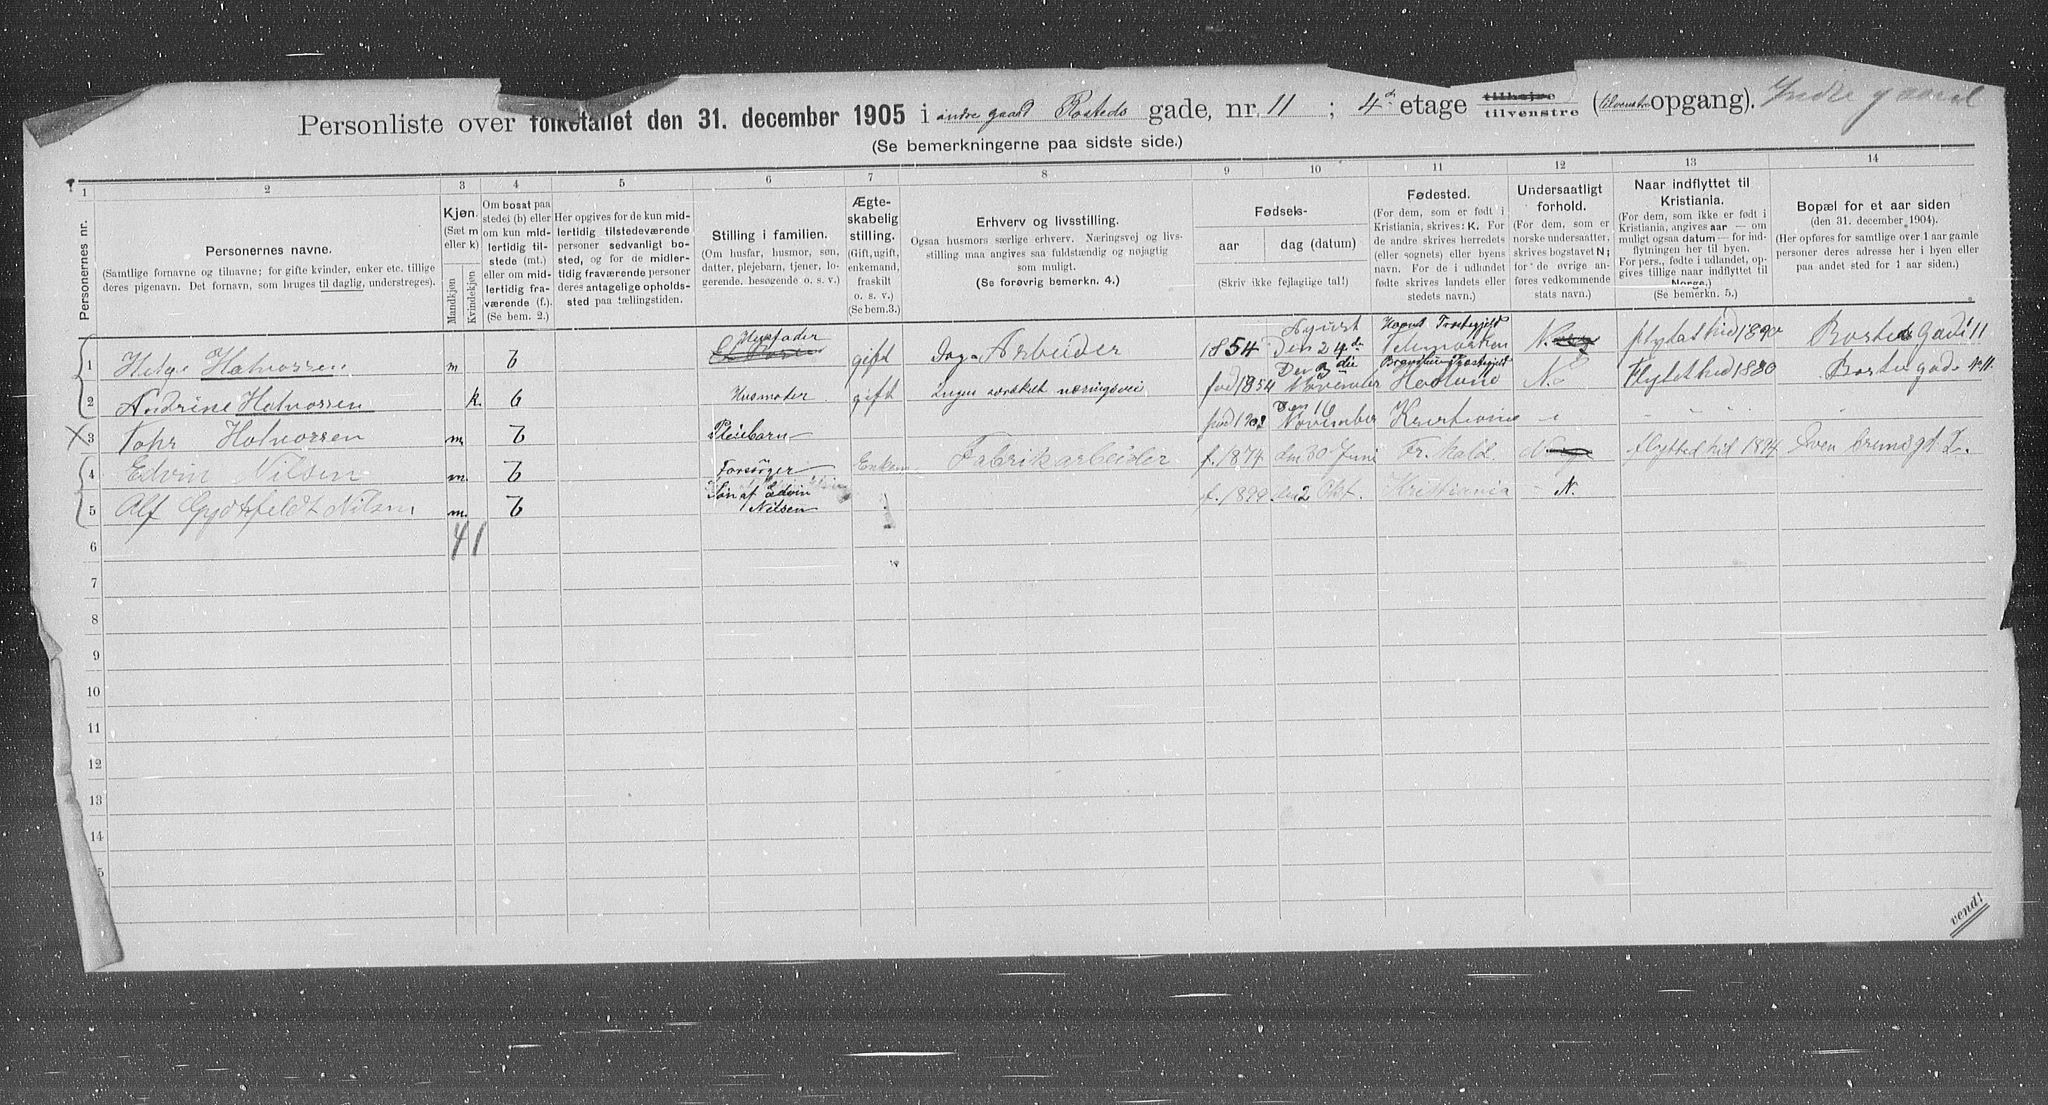 Personliste over folketallet den 31. december 1905 i indre gaard Rosteds gade, nr. 11 ; 4de etage tilhøjre tilvenstre (tilvenstre opgang). Indre gaard
(Se bemerkningerne paa sidste side.)
1 2 3 4 5 6 7 8 9 10 11 12 13 14
Personernes nr.
Personernes navne.
(Samtlige fornavne og tilnavne; for gifte kvinder, enker etc. tillige
deres pigenavn. Det fornavn, som bruges til daglig, understreges).
Kjøn.
(Sæt m
eller k)
Mandkjøn
Kvindekjøn
Om bosat paa
stedet (b) eller
om kun mid-
lertidig til-
stede (mt.)
eller om mid-
lertidig fra-
værende (f.).
(Se bem. 2.)
Her opgives for de kun mid-
lertidig tilstedeværende
personer sedvanligt bo-
sted, og for de midler-
tidig fraværende personer
deres antagelige opholds-
sted paa tællingstiden.
Stilling i familien.
(Om husfar, husmor, søn,
datter, plejebarn, tjener, lo-
gerende. besøgende o. s. v.)
Ægte-
skabelig
stilling.
(Gift, ugift,
enkemand,
fraskilt
o. s. v.)
(Se bem.3.)
Erhverv og livsstilling.
Ogsaa husmors særlige erhverv. Næringsvej og livs-
stilling maa angives saa fuldstændig og nøjagtig
som muligt.
(Se forøvrig bemerkn. 4.)
Fødsels-
aar
dag (datum)
(Skriv ikke fejlagtige tal!)
Fødested.
(For dem, som er født i
Kristiania, skrives: K. For
de andre skrives herredets
(eller sognets) eller byens
navn. For de i udlandet
fødte skrives landets eller
stedets navn.)
Undersaatligt
forhold.
(For dem, som er
norske undersaatter,
skrives bogstavet N;
for de øvrige an-
føres vedkommende
stats navn.)
Naar indflyttet til
Kristiania.
(For dem, som ikke er født i
Kristiania, angives aar — om
muligt ogsaa datum — for ind-
flytningen her til byen.
For pers., fødte i udlandet, op-
gives tillige naar indflyttet til
Norge.)
(Se bemerkn. 5.)
Bopæl for et aar siden
(den 31. december 1904).
(Her opføres for samtlige over 1 aar gamle
personer deres adresse her i byen eller
paa andet sted for 1 aar siden.)
1 Helge Halvorsen m b Husfader gift Dag- Arbeider 1854 August Den 24de Telemarken N. flyttet hid 1890 Rosteds Gade 11
2 Andrine Halvorsen k. b Husmoder gift Ingen særskilt næringsvei fød 1854 Den 3die November N. Flyttet hid 1880 Rosteds gade No 11
X 3 Tohr Halvorsen m b Pleiebarn fød 1902 Den 16 November Kristiania
4 Edvin Nilsen m. b Forsørger Enkem. Fabrikarbeider f. 1874 den 30 Juni Fr. Hald. flyttet hid 1894
5 Alf Nilsen m. b Søn af Edvin Nilsen f. 1899 den 2 Okt. Kristiania N.
6 4 1
7
8
9
10
11
12
13
14
5
vend!